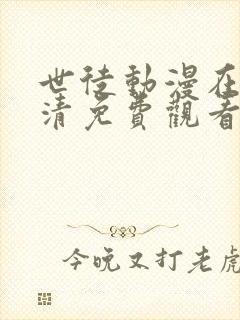 世徒動漫在
清免費觀看
今晚又打老虎